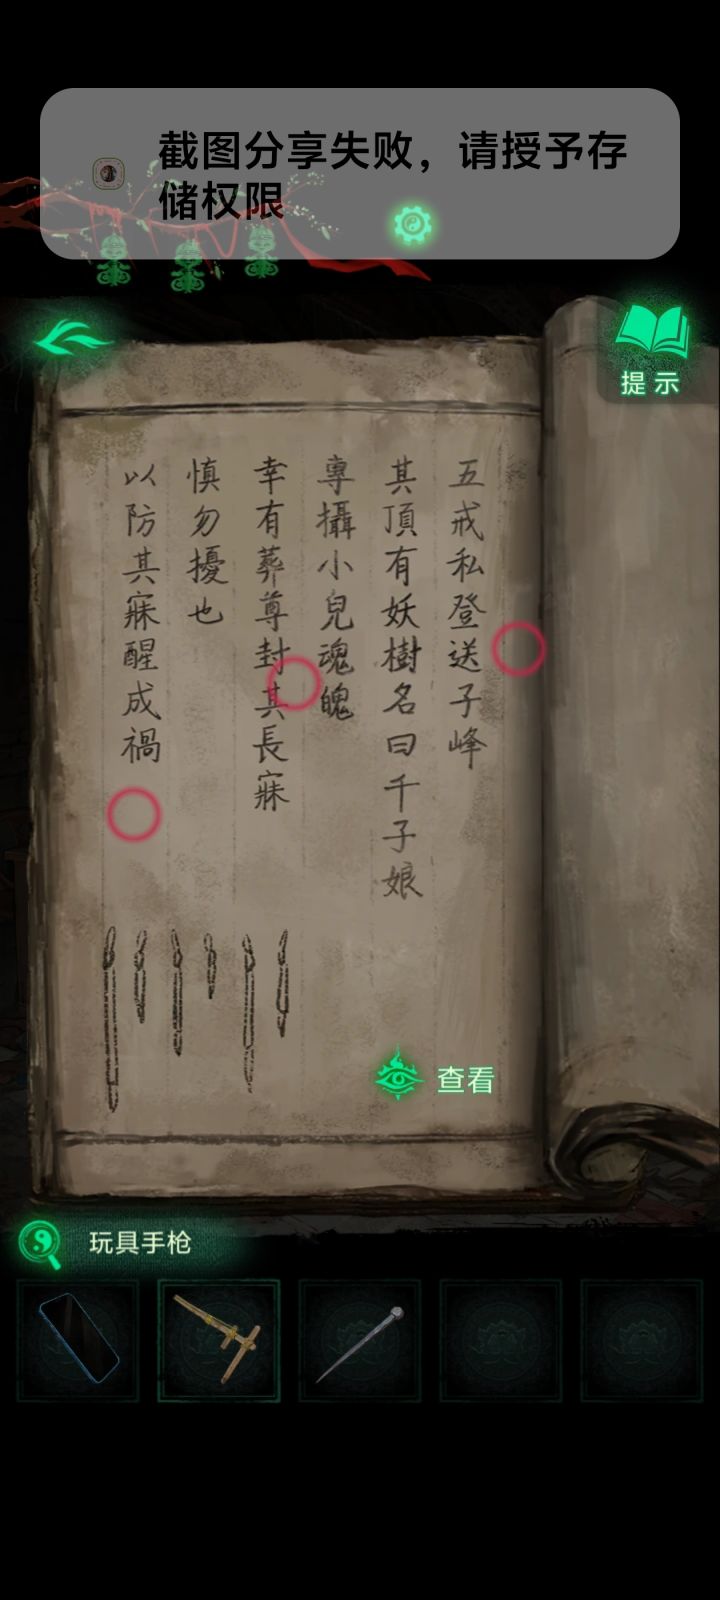 截图分享失败，请授予存
储权限
提示
五戒私登送子峰
其頂有妖樹名曰千子娘
專攝小兒魂魄
幸有葬尊封其長寐
慎勿擾也
以防其寐醒成禍
查看
玩具手枪